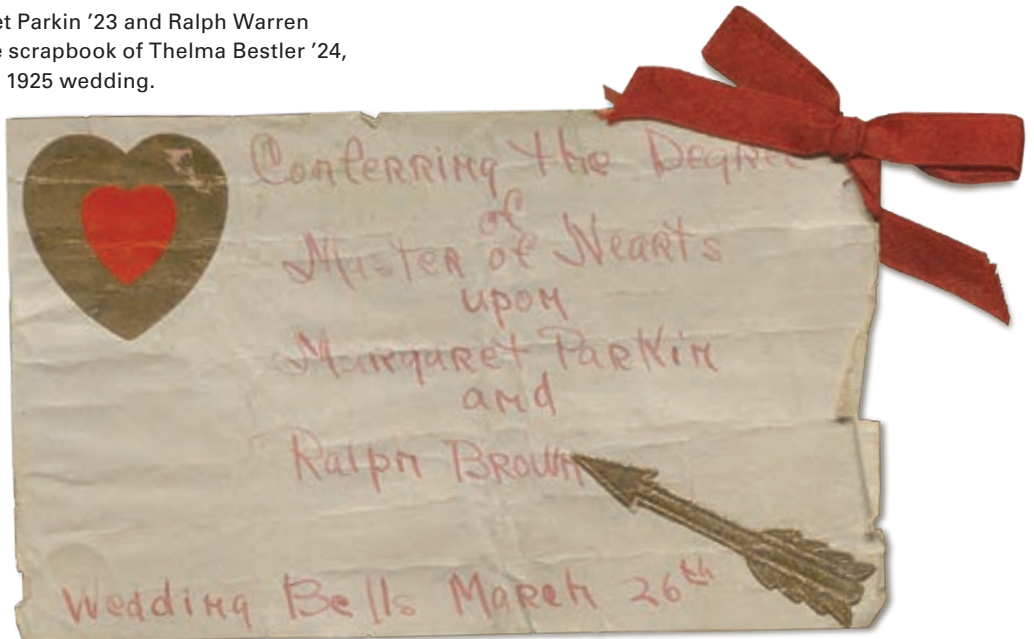 et Parkin ’23 and Ralph Warren
e scrapbook of Thelma Bestler ’24,
1925 wedding.
Conferring the Degree
of
Master of Hearts
upon
Margaret Parkin
and
Ralph Brown
Wedding Bells March 26th